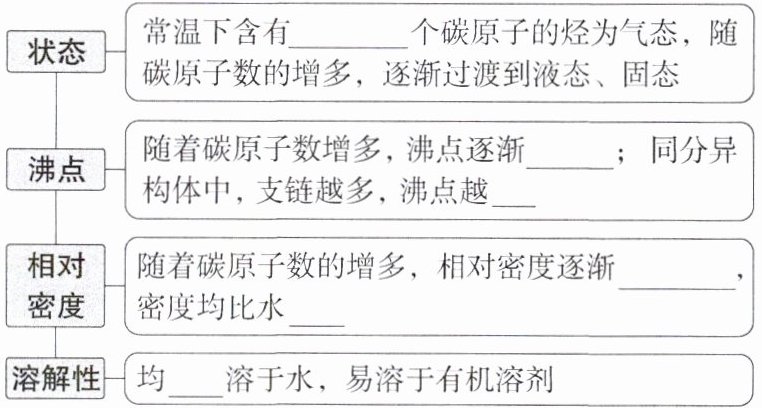 状态
常温下含有________个碳原子的烃为气态，随
碳原子数的增多，逐渐过渡到液态、固态
沸点
随着碳原子数增多，沸点逐渐______；同分异
构体中，支链越多，沸点越___
相对
密度
随着碳原子数的增多，相对密度逐渐________，
密度均比水____
溶解性
均____溶于水，易溶于有机溶剂